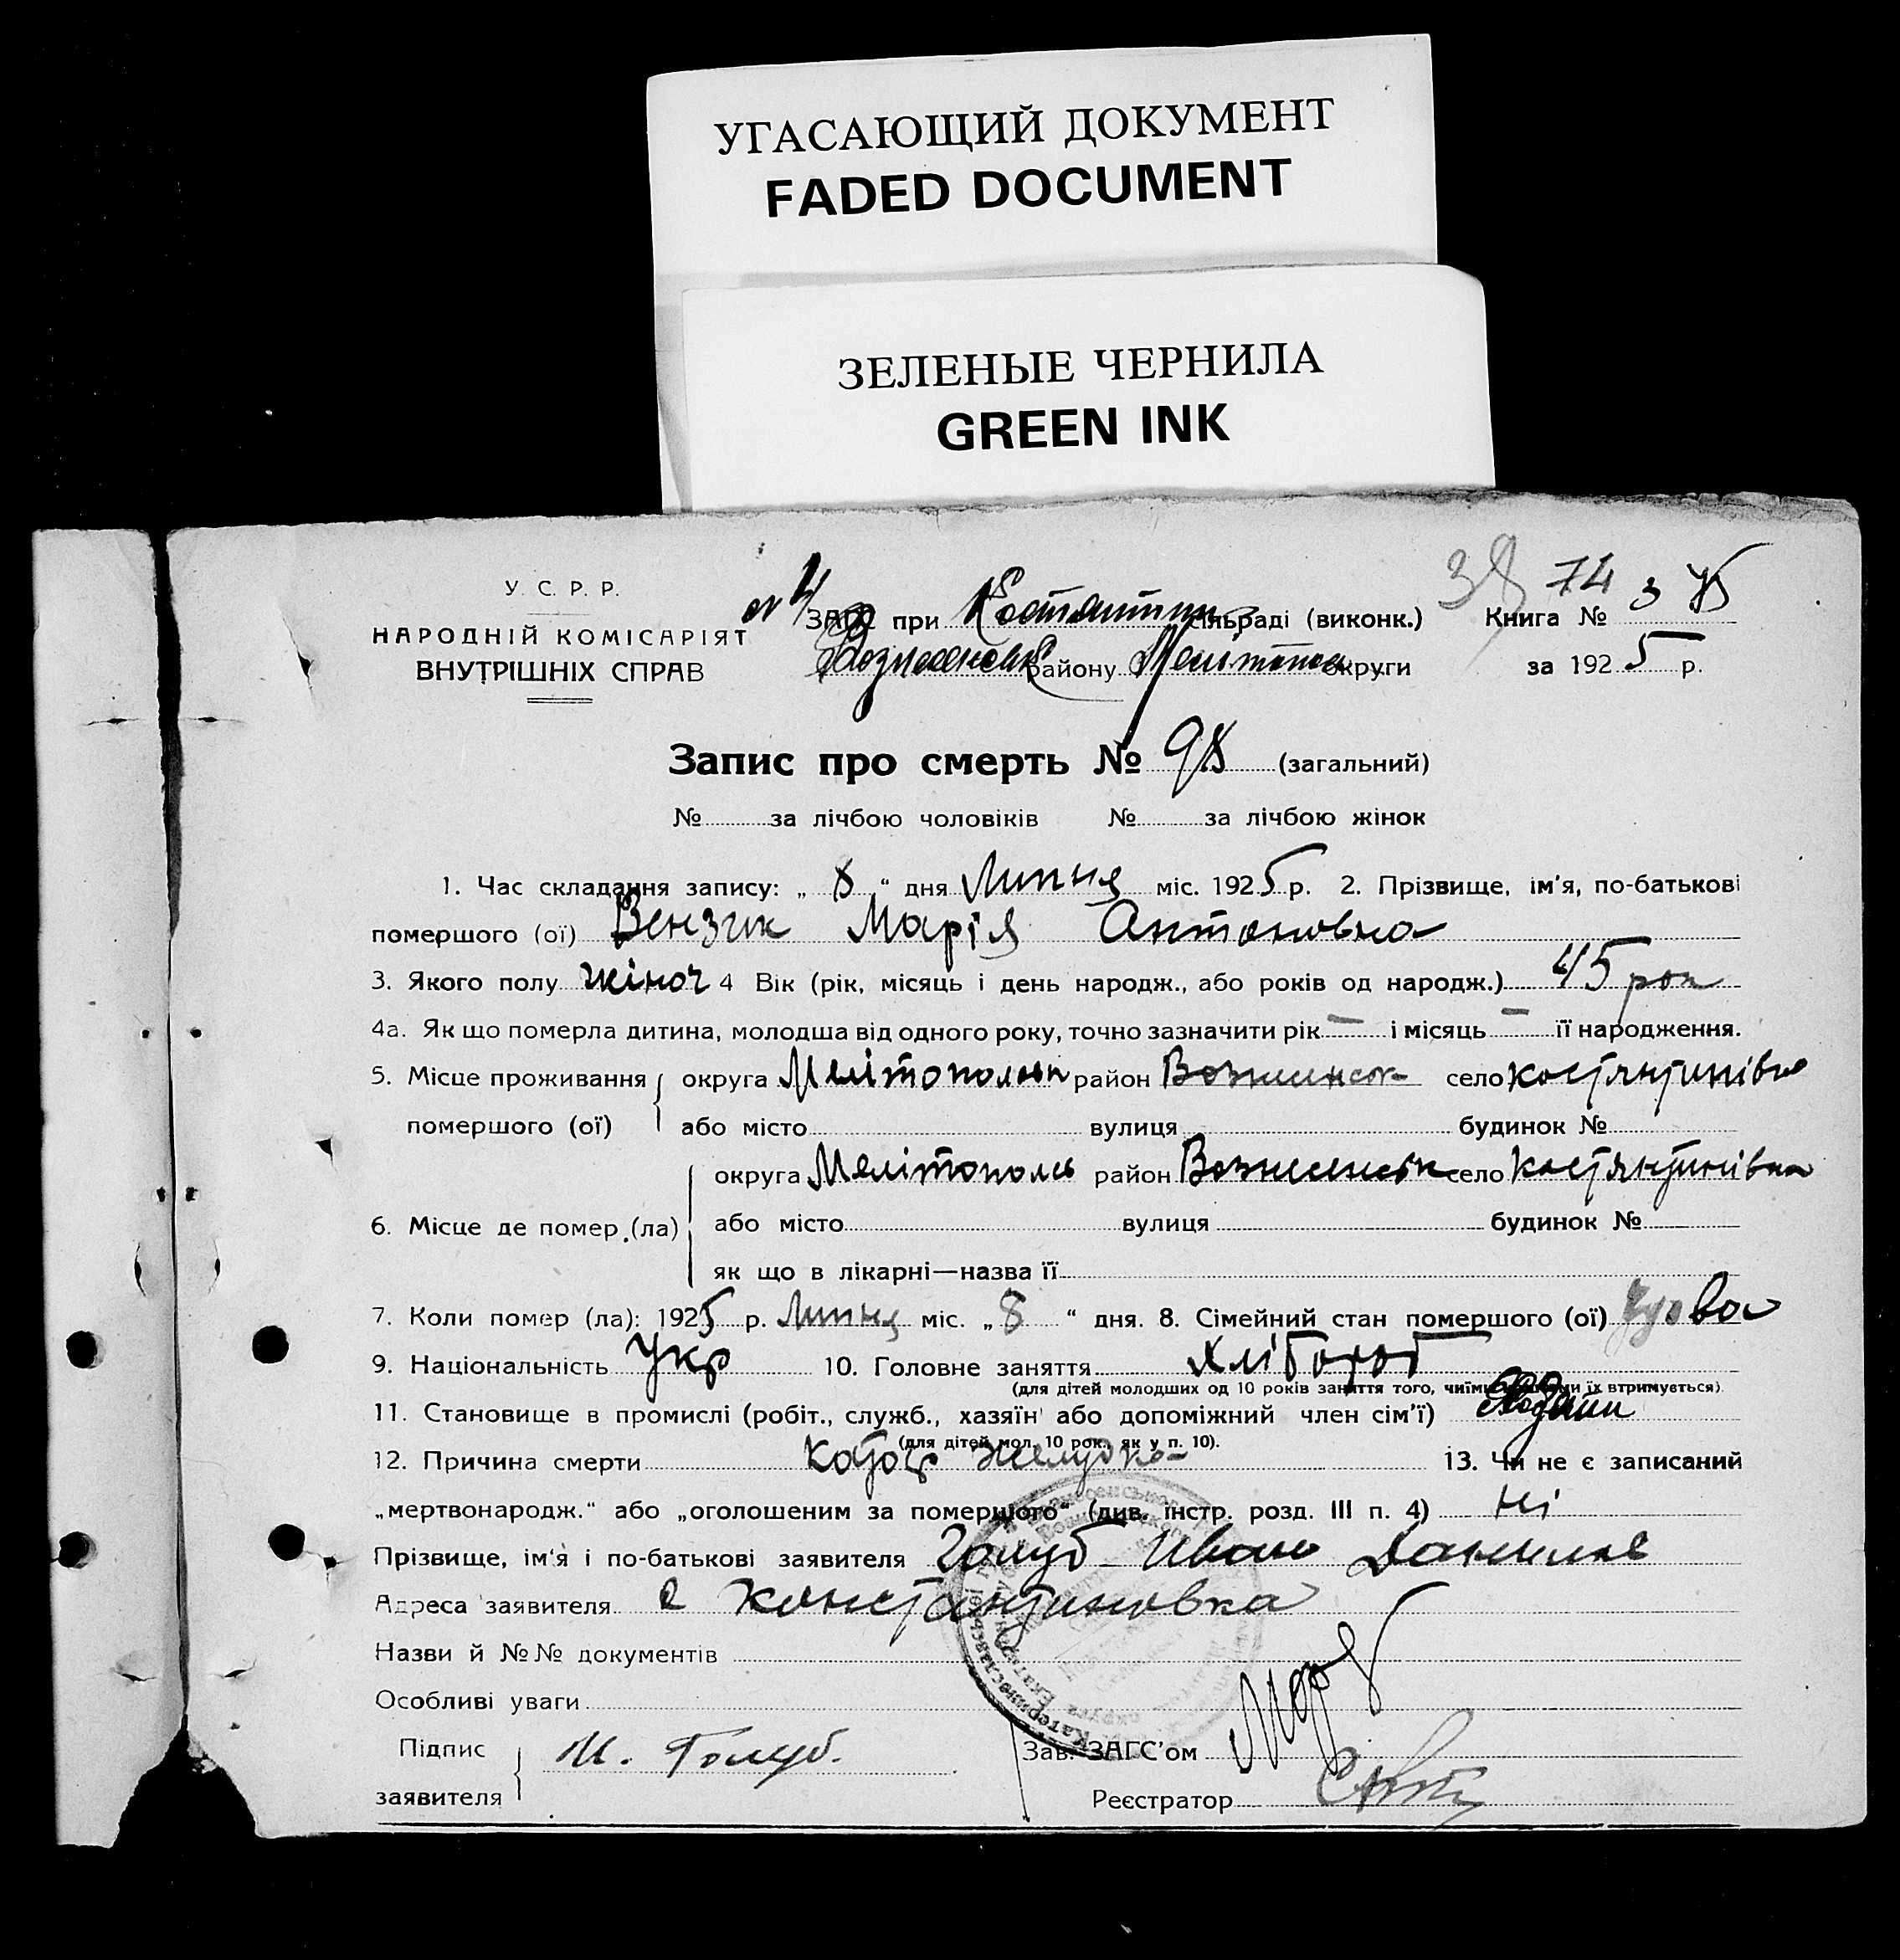 УГАСАЮЩИЙ ДОКУМЕНТ
FADED DOCUMENT
ЗЕЛЕНЫЕ ЧЕРНИЛА
GREEN INK
У. С. Р. Р.
НАРОДНІЙ КОМІСАРІЯТ
ВНУТРІШНІХ СПРАВ
ЗАГС при Костянтин сільраді (виконк.) Книга № 74
району Мелітополь округи за 1925 р.
Запис про смерть № 98 (загальний)
№ за лічбою чоловіків № за лічбою жінок
1. Час складання запису: „ 8 “ дня Липня міс. 1925 р. 2. Прізвище, ім'я, по-батькові
помершого (ої) Вензик Марія Антоновна
3. Якого полу жіноч 4 Вік (рік, місяць і день народж., або років од народж.) 45 рок
4а. Як що померла дитина, молодша від одного року, точно зазначити рік — і місяць — її народження.
5. Місце проживання помершого (ої) округа район село Костянтинівка
або місто вулиця будинок №
6. Місце де помер (ла) округа Мелітополь район село Костянтинівка
або місто вулиця будинок №
як що в лікарні—назва її
7. Коли помер (ла): 1925 р. Липня міс. „ 8 “ дня. 8. Сімейний стан помершого (ої)
9. Національність Укр 10. Головне заняття Хлібороб
(для дітей молодших од 10 років заняття того, чиїми їх втримується)
11. Становище в промислі (робіт., служб., хазяїн або допоміжний член сім'ї)
(для дітей мол. 10 рок., як у п. 10).
12. Причина смерти Катар желудка 13. Чи не є записаний
„мертвонародж.“ або „оголошеним за помершого“ (див. інстр. розд. III п. 4) Ні
Прізвище, ім'я і по-батькові заявителя Голуб Иван Данилов
Адреса заявителя с Константиновка
Назви й №№ документів
Особливі уваги
Підпис заявителя И. Голуб.
Зав. ЗАГС'ом
Реєстратор